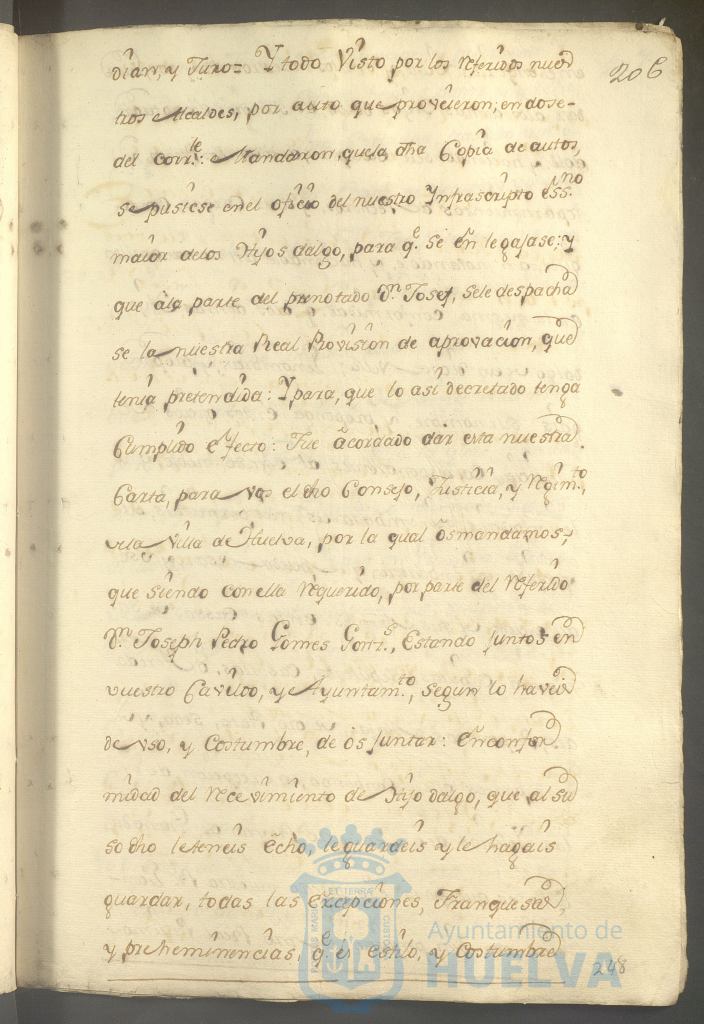 206
dian, y Juro= Y todo Visto por los referidos nues
tros Alcaldes, por auto que proveieron, en dose-
del corr.te: Mandaron, que la dha Copia de autos,
se pusiese en el oficio del nuestro Ynfrascripto ess.no
maior delos Hijos dalgo, para q.e se enlegajase; y
que âla parte del prenotado D.n Josef, sele despacha
se la nuestra Real Provision de aprovacion, que
tenia pretendida: Y para, que lo asi decretado tenga
Cumplido efecto: Fue acordado dar esta nuestra
Carta, para vos el dho Consejo, Justicia, y Regim.to,
dela Villa de Huelva, por la qual os mandamos,
que siendo con ella requerido, por parte del referido
D.n Joseph Pedro Gomes Gonz.s, Estando juntos en
vuestro Cavildo, y Ayuntam.to, segun lo haveis
de vso, y Costumbre, de os juntar: En confor
midad del recevimiento de Hijo dalgo, que al su
so dho leteneis echo, le guardeis y le hagais
guardar, todas las Excepciones, Franquesas,
y preheminencias, q.e es estilo, y Costumbre
248
Ayuntamiento de
HUELVA